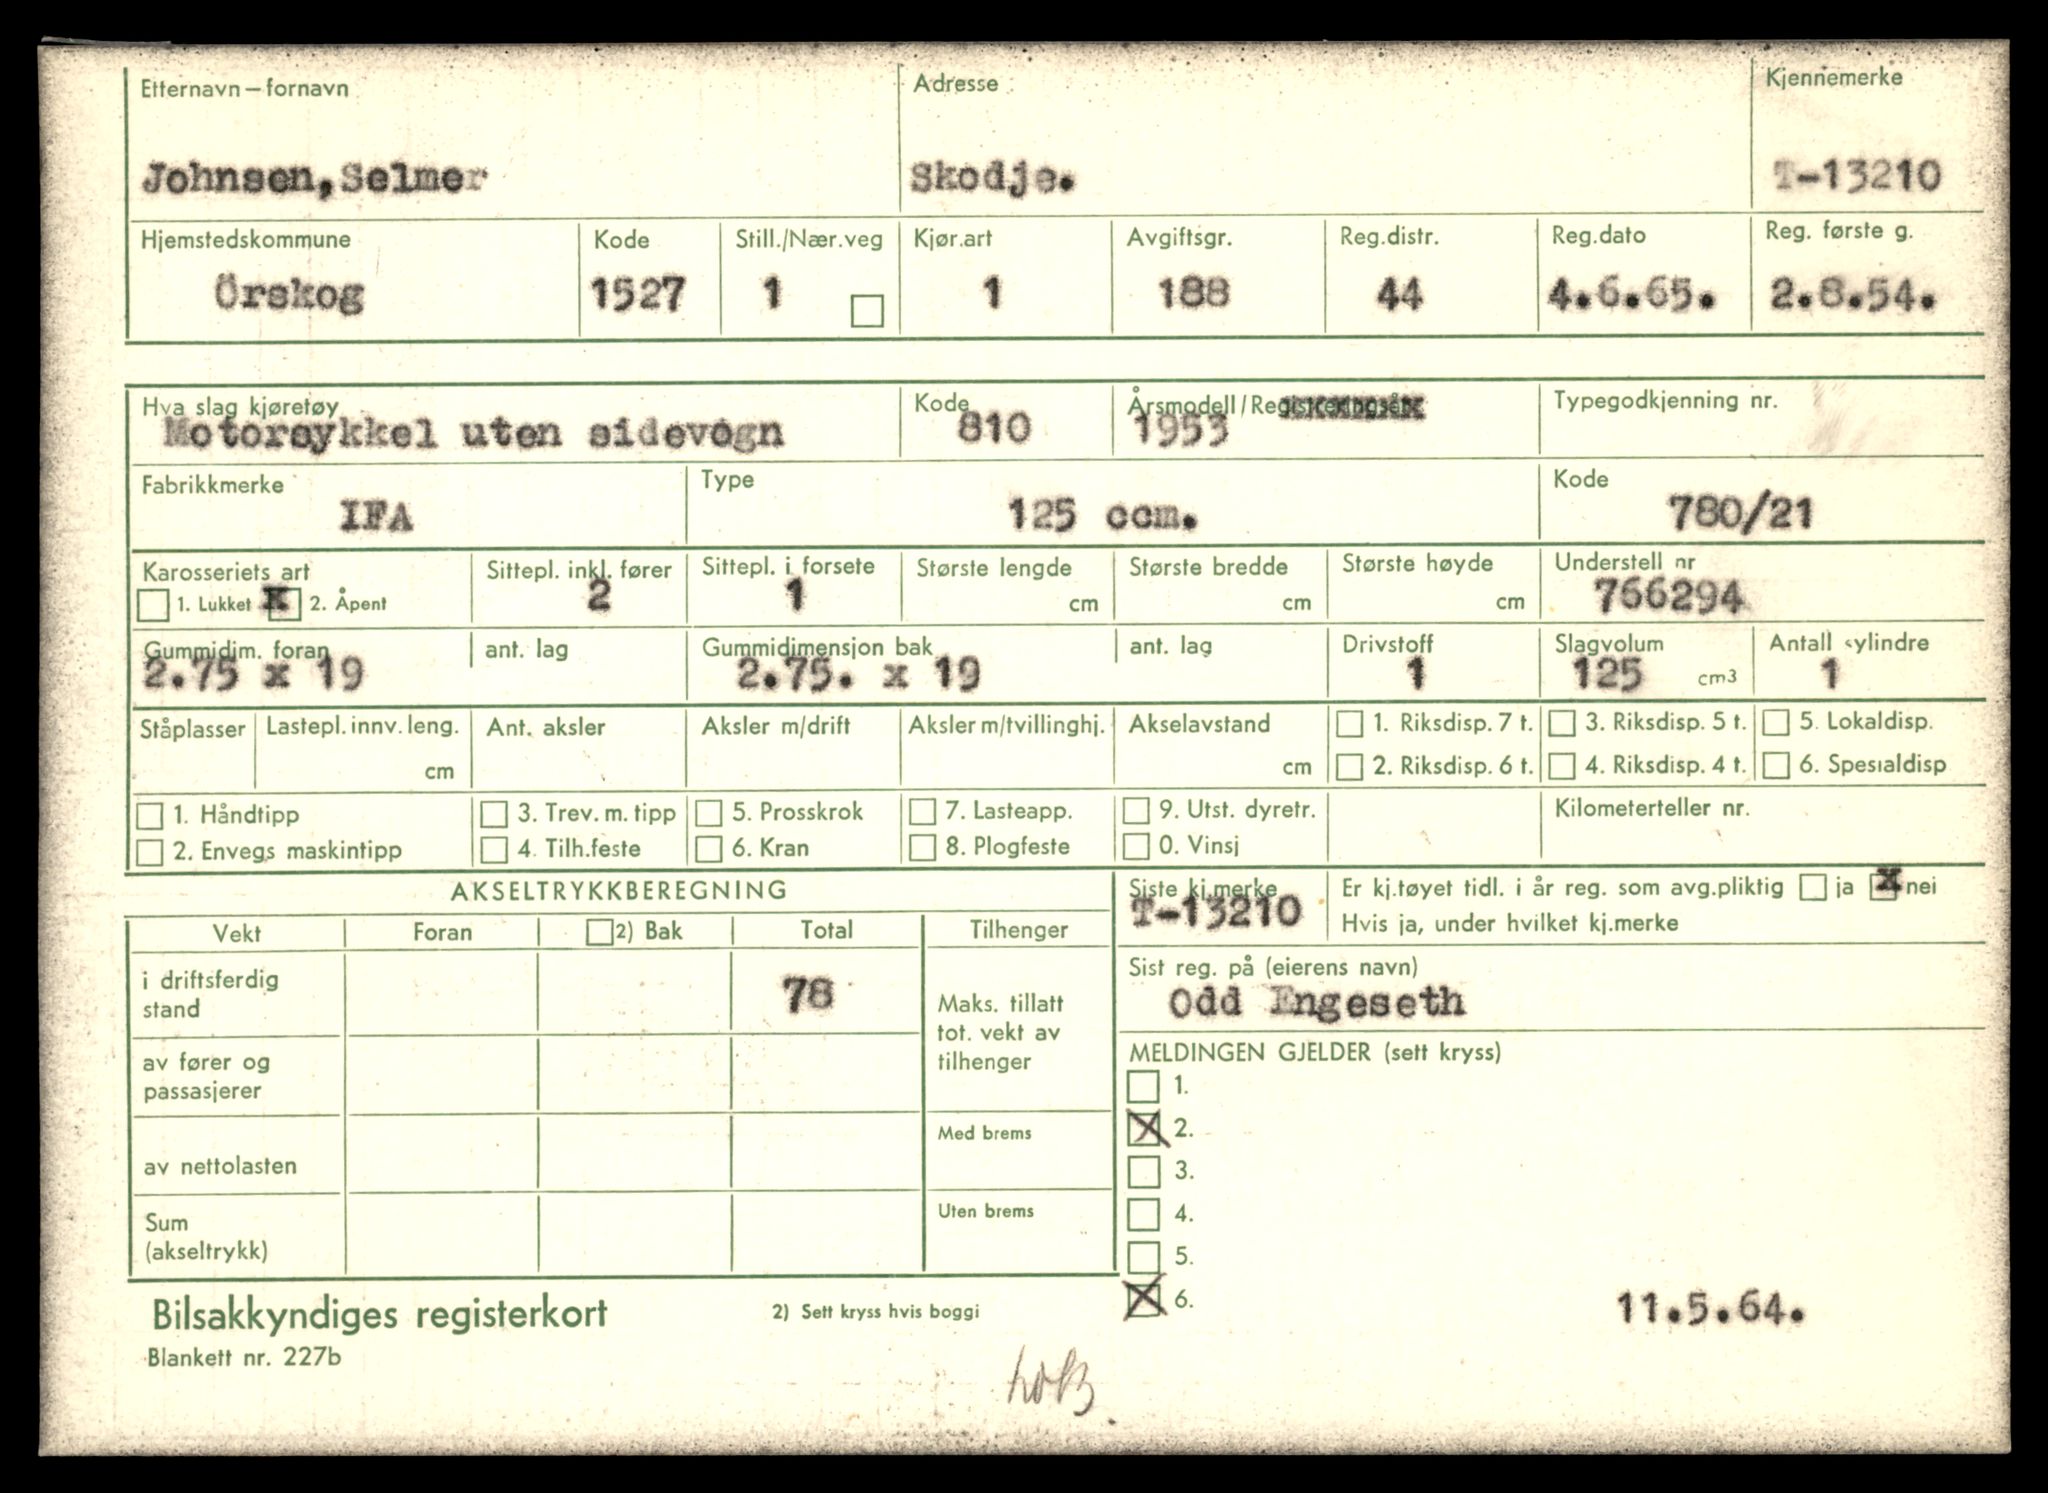 Etternavn – fornavn Adresse Kjennemerke
Johnsen, Selmer Skodje. T-13210
Hjemstedskommune Kode Still./Nær.veg Kjør.art Avgiftsgr. Reg.distr. Reg.dato Reg. første g.
Örskog 1527 1 1 188 44 4.6.65. 2.8.54.
Hva slag kjøretøy Kode Årsmodell/Registreringsår Typegodkjenning nr.
Motorsykkel uten sidevogn 810 1953
Fabrikkmerke Type Kode
IFA 125 ccm. 780/21
Karosseriets art Sittepl. inkl. fører Sittepl. i forsete Største lengde Største bredde Største høyde Understell nr
1. Lukket x 2. Åpent 2 1 cm cm cm 766294
Gummidim. foran ant. lag Gummidimensjon bak ant. lag Drivstoff Slagvolum Antall sylindre
2.75 x 19 2.75. x 19 1 125 cm3 1
Ståplasser Lastepl. innv. leng. Ant. aksler Aksler m/drift Aksler m/tvillinghj. Akselavstand 1. Riksdisp. 7 t. 3. Riksdisp. 5 t. 5. Lokaldisp.
cm cm 2. Riksdisp. 6 t. 4. Riksdisp. 4 t. 6. Spesialdisp
1. Håndtipp 3. Trev. m. tipp 5. Prosskrok 7. Lasteapp. 9. Utst. dyretr. Kilometerteller nr.
2. Envegs maskintipp 4. Tilh.feste 6. Kran 8. Plogfeste 0. Vinsj
AKSELTRYKKBEREGNING Siste kj.merke Er kj.tøyet tidl. i år reg. som avg.pliktig ja x nei
T-13210 Hvis ja, under hvilket kj.merke
Vekt Foran 2) Bak Total Tilhenger
Sist reg. på (eierens navn)
Odd Engeseth
i driftsferdig
stand 78
Maks. tillatt
tot. vekt av
tilhenger
MELDINGEN GJELDER (sett kryss)
av fører og
passasjerer
1.
X 2.
Med brems
av nettolasten 3.
Uten brems 4.
Sum
(akseltrykk) 5.
X 6. 11.5.64.
Bilsakkyndiges registerkort 2) Sett kryss hvis boggi
Blankett nr. 227b